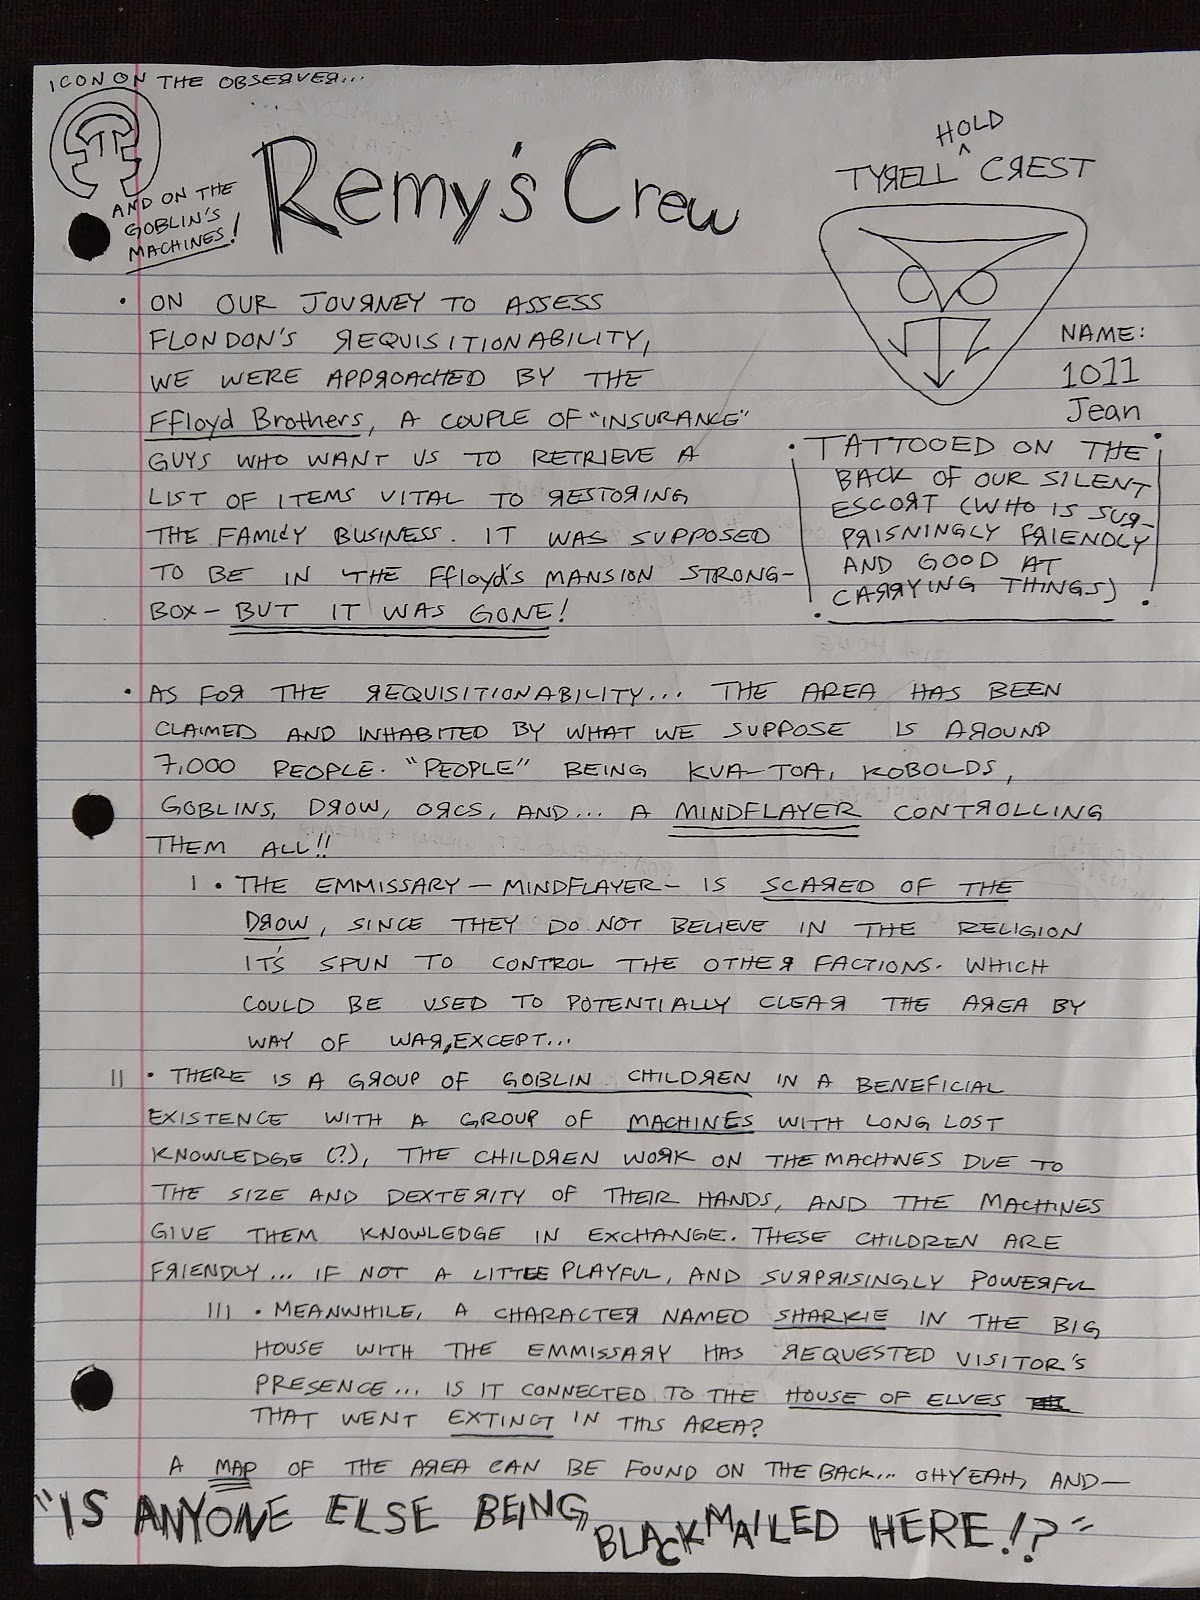 ICON ON THE OBSERVER...
AND ON THE
GOBLIN'S
MACHINES!
Remy's Crew
HOLD
TYRELL ^ CREST
NAME:
1011
Jean
• TATTOOED ON THE
BACK OF OUR SILENT
ESCORT (WHO IS SUR-
PRISNINGLY FRIENDLY
AND GOOD AT
CARRYING THINGS)
• ON OUR JOURNEY TO ASSESS
FLONDON'S REQUISITIONABILITY,
WE WERE APPROACHED BY THE
Ffloyd Brothers, A COUPLE OF "INSURANCE"
GUYS WHO WANT US TO RETRIEVE A
LIST OF ITEMS VITAL TO RESTORING
THE FAMILY BUSINESS. IT WAS SUPPOSED
TO BE IN THE Ffloyd's MANSION STRONG-
BOX - BUT IT WAS GONE!
• AS FOR THE REQUISITIONABILITY... THE AREA HAS BEEN
CLAIMED AND INHABITED BY WHAT WE SUPPOSE IS AROUND
7,000 PEOPLE. "PEOPLE" BEING KUA-TOA, KOBOLDS,
GOBLINS, DROW, ORCS, AND... A MINDFLAYER CONTROLLING
THEM ALL!!
I • THE EMMISSARY - MINDFLAYER - IS SCARED OF THE
DROW, SINCE THEY DO NOT BELIEVE IN THE RELIGION
IT'S SPUN TO CONTROL THE OTHER FACTIONS. WHICH
COULD BE USED TO POTENTIALLY CLEAR THE AREA BY
WAY OF WAR, EXCEPT...
II • THERE IS A GROUP OF GOBLIN CHILDREN IN A BENEFICIAL
EXISTENCE WITH A GROUP OF MACHINES WITH LONG LOST
KNOWLEDGE (?), THE CHILDREN WORK ON THE MACHINES DUE TO
THE SIZE AND DEXTERITY OF THEIR HANDS, AND THE MACHINES
GIVE THEM KNOWLEDGE IN EXCHANGE. THESE CHILDREN ARE
FRIENDLY... IF NOT A LITTLE PLAYFUL, AND SURPRISINGLY POWERFUL
III • MEANWHILE, A CHARACTER NAMED SHARKIE IN THE BIG
HOUSE WITH THE EMMISSARY HAS REQUESTED VISITOR'S
PRESENCE... IS IT CONNECTED TO THE HOUSE OF ELVES
THAT WENT EXTINCT IN THIS AREA?
A MAP OF THE AREA CAN BE FOUND ON THE BACK... OH YEAH, AND—
"IS ANYONE ELSE BEING BLACKMAILED HERE!?"